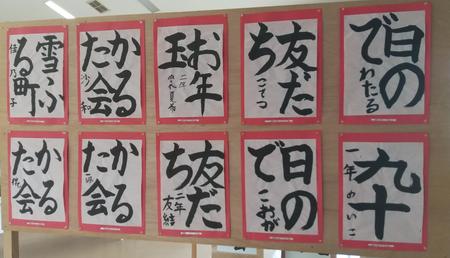 日の
で
わたる
友だ
ち
こてつ
お年
玉
二年
かる
た会
沙和
雪ふ
る町
佳乃子
九十
一年 めいこ
日の
で
こおが
友だ
ち
二年
友結
かる
た会
かる
た会